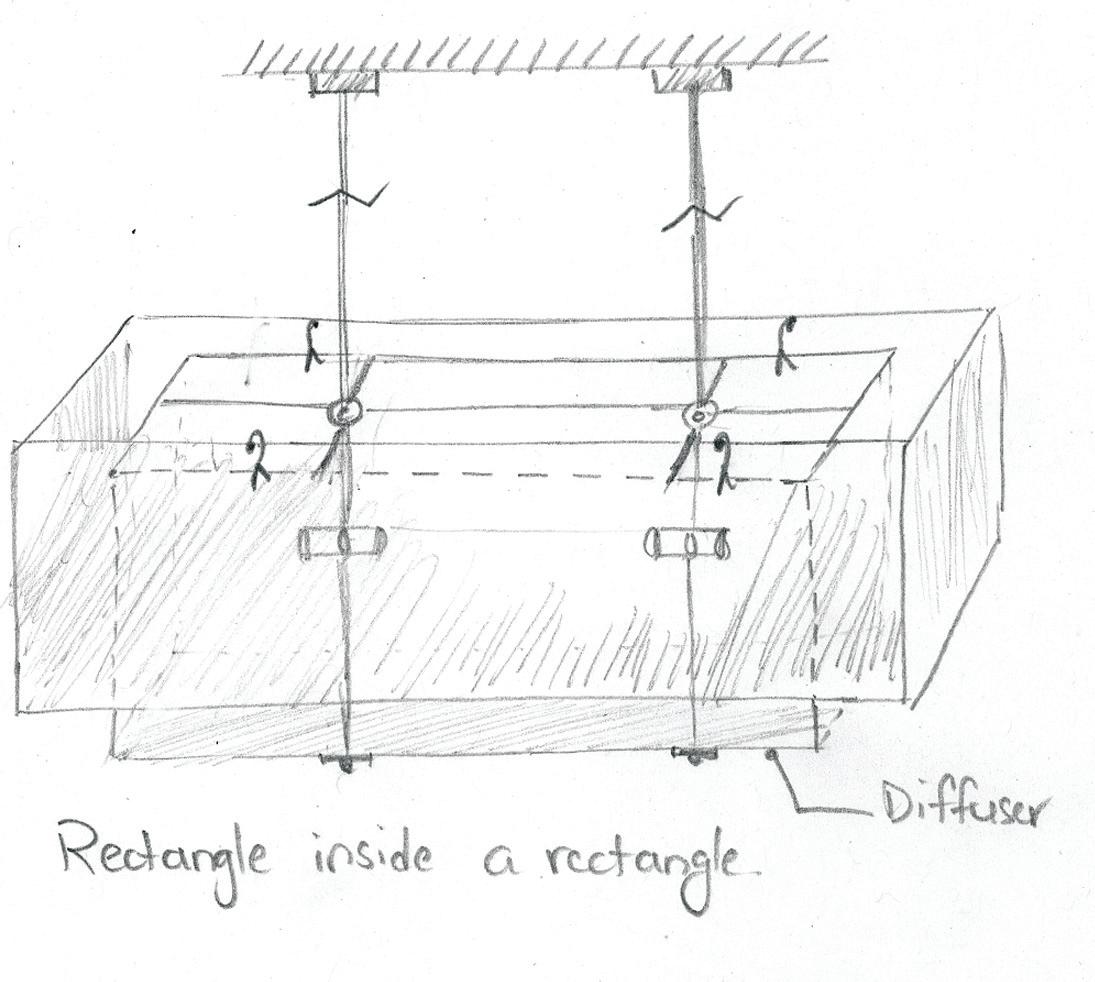 Diffuser
Rectangle inside a rectangle